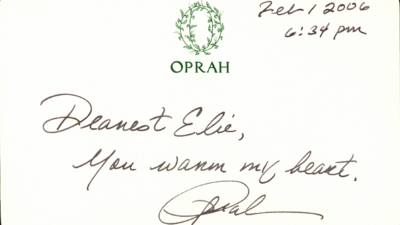 Feb 1 2006
6:34 pm
OPRAH
Dearest Elie,
You warm my heart.
Oprah